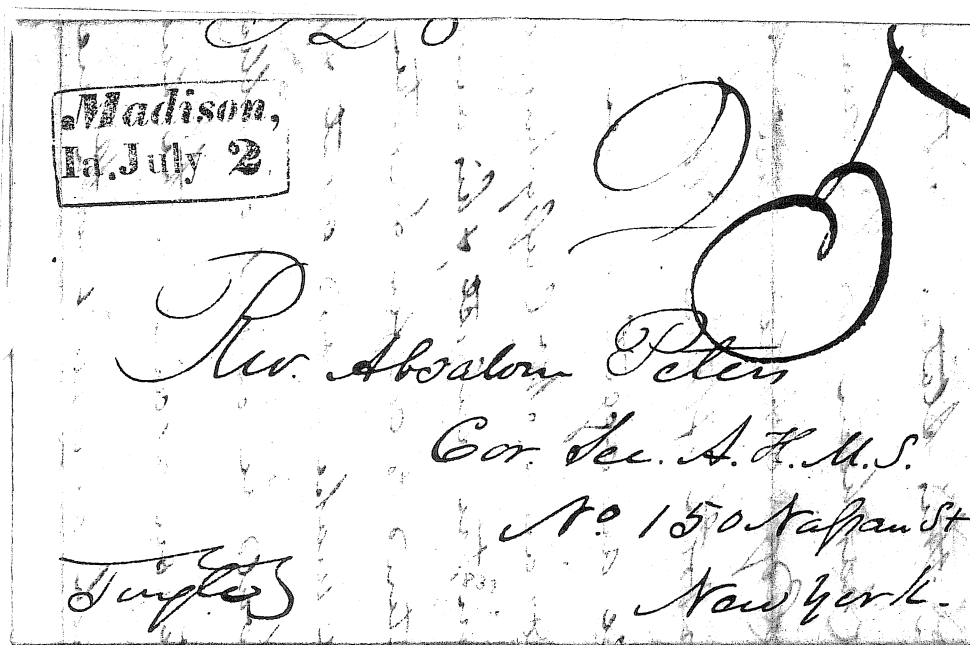 Madison,
Ia. July 2
25
Rev. Absalom Peters
Cor. Sec. A. H. M. S.
No. 150 Nassau St
New York.
Single